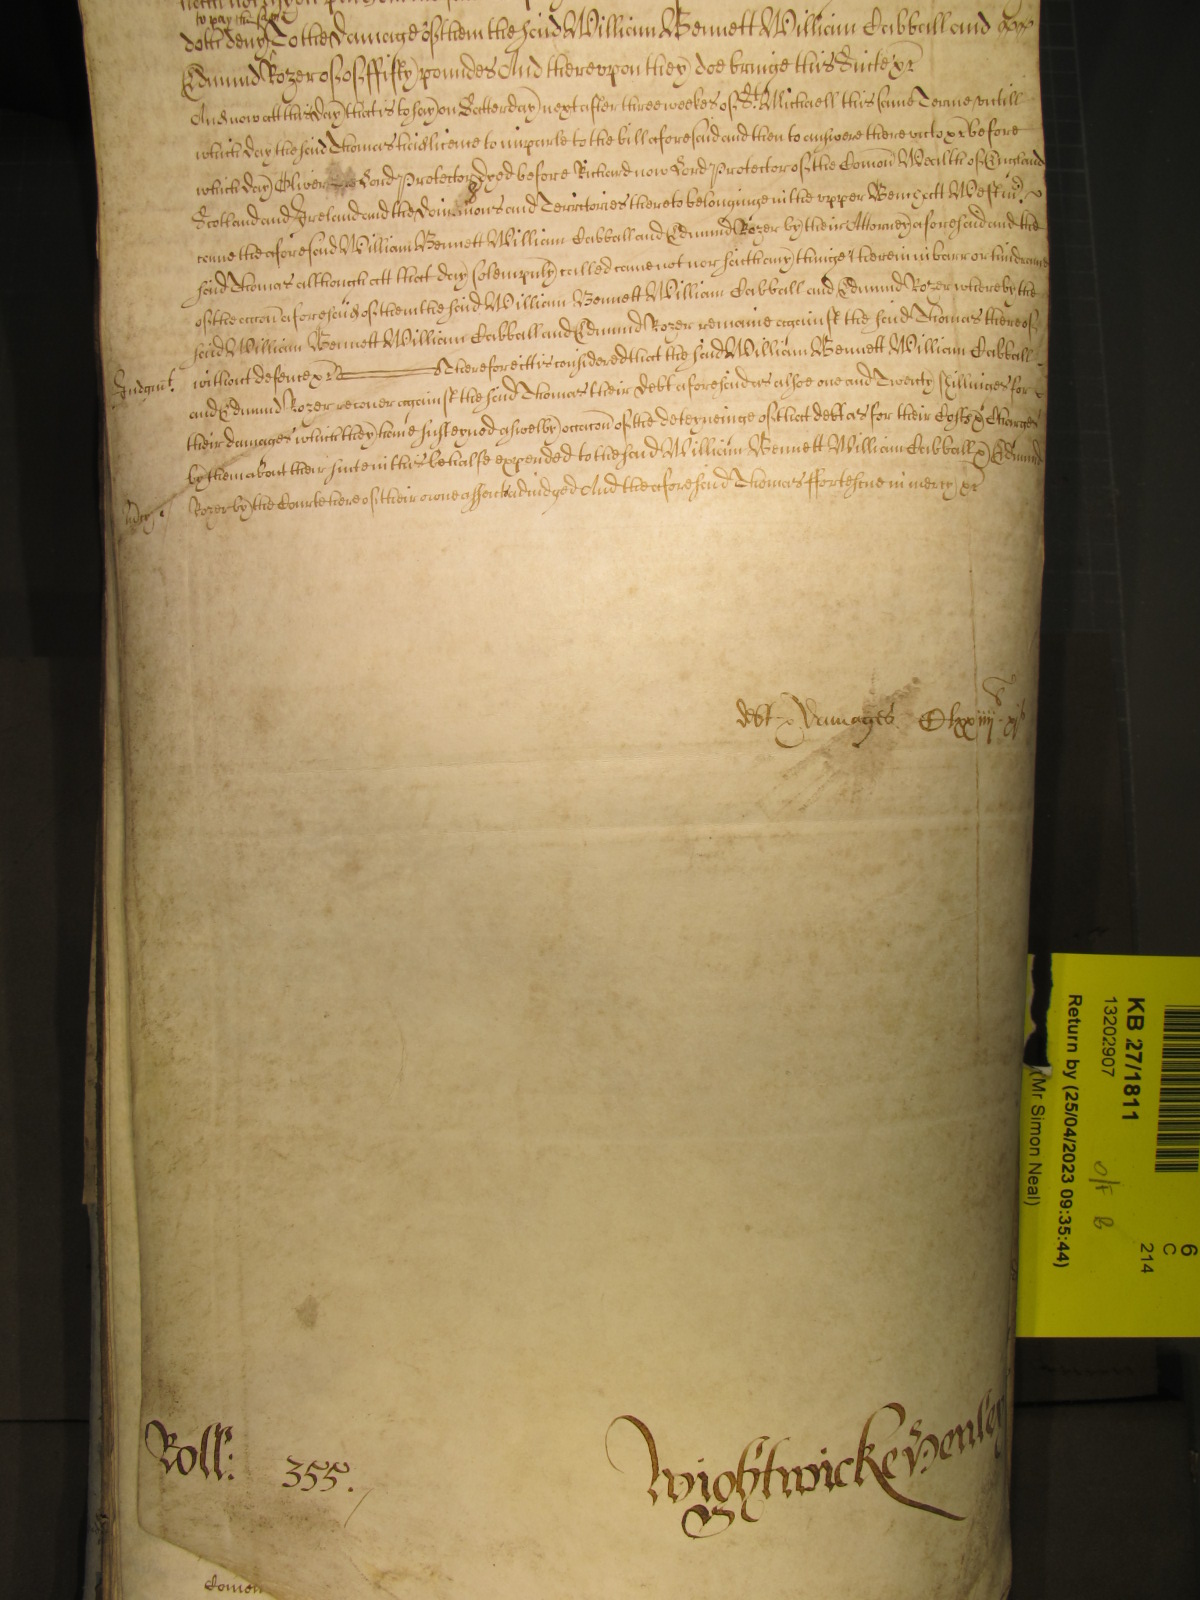 to pay the same
doth deny To the Damage of them the said William Bennett William Cabball and
Edmund Rozer of ffifty poundes And thereupon they doe bringe this Suite &c
And now att this day that is to say on Satterday next after three weekes of St. Michaell this same Terme untill
which day the said Thomas had licence to imparle to the bill aforesaid and then to answere thereunto &c before
which day Oliver Lord Protector dyed before Richard now Lord Protector of the Com̄on Wealth of England
Scotland and Ireland and the Dominions and Territories thereto belonginge in the upper Bench att Westmr.
came the aforesaid William Bennett William Cabball and Edmund Rozer by their Attorney aforesaid and the
said Thomas although att that day solempnly called came not nor saith any thinge therein in barr or hindrance
of the acc̄on aforesaid of them the said William Bennett William Cabball and Edmund Rozer whereby the
said William Bennett William Cabball and Edmund Rozer remaine against the said Thomas thereof
Judgmt. without defence &c Therefore itt is considered that the said William Bennett William Cabball
and Edmund Rozer recover against the said Thomas their Debt aforesaid as alsoe one and Twenty shillinges for
their damages which they have susteyned aswel by occac̄on of the deteyneinge of that debt as for their Costs & Charges
by them about their suite in this behalfe expended to the said William Bennett William Cabball & Edmund
Mercy. Rozer by the Courte here of their owne assent adiudged And the aforesaid Thomas ffortescue in mercy &c
debt & Damages
Roll: 355. Wightwicke & Henley
Comon
KB 27/1811
13202907
Return by (25/04/2023 09:35:44)
(Mr Simon Neal)
O/F B
6
C
214